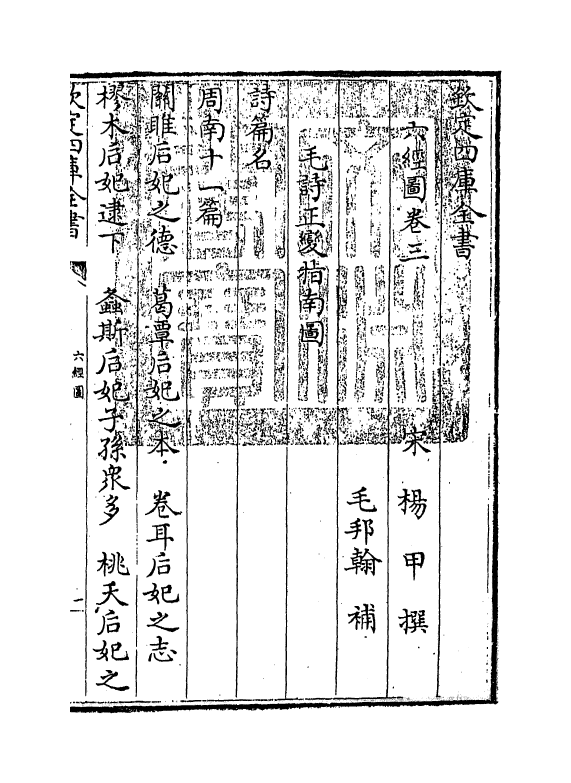 欽定四庫全書
六經圖卷三
宋 楊 甲 撰
毛邦翰 補
毛詩正變指南圖
詩篇名
周南十一篇
關雎后妃之德 葛覃后妃之本 卷耳后妃之志
樛木后妃逮下 螽斯后妃子孫衆多 桃夭后妃之
欽定四庫全書
六經圖
一